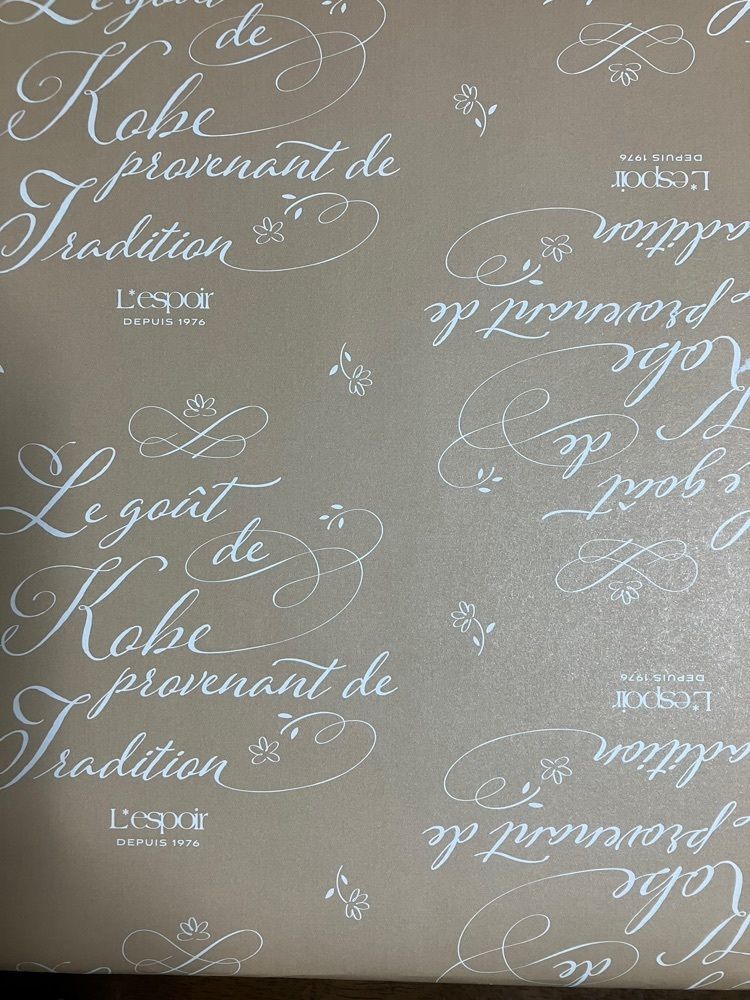 Le goût
de
Kobe
provenant de
Tradition
L*espoir
DEPUIS 1976
Le goût
de
Kobe
provenant de
Tradition
L*espoir
DEPUIS 1976
L*espoir
DEPUIS 1976
Tradition
provenant de
Kobe
de
Le goût
L*espoir
DEPUIS 1976
Tradition
provenant de
Kobe
de